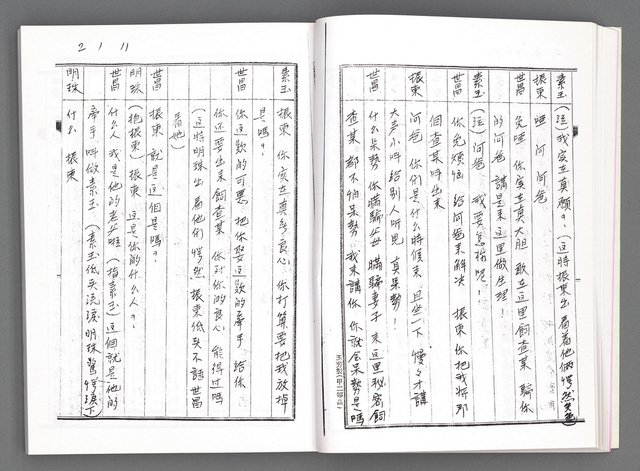 素玉 (泣)我实在真願? (这時振東出 看着他俩愕然失色)
振東 唔 阿 阿爸
世昌 免唔 你实在真大胆 敢在這里飼查某 騙你
的阿爸 講是来這里做生理!
素玉 (泣)阿爸 我要怎樣呢!
世昌 你免煩惱 給阿爸来解決 振東 你把我将那
個查某叫出来
振東 阿爸 你們是什么時候来 且坐一下 慢々才講
大声小叫 给别人听見 真呆勢!
世昌 什么呆勢 你瞞騙父母 瞞騙妻子 来這里秘密飼
查某 都不怕呆勢 我来講你 你就会呆勢是嗎
素玉 振東 你实在真無良心 你打算要把我放掉
是嗎?
世昌 你這款的可惡 把你娶這款的牽手 给你
你还要出来飼查某 你对你的良心 能得过嗎
(这時明珠出 看他们愕然 振東低头不語 世昌
看她)
世昌 振東 就是這個是嗎?
明珠 (抱振東)振東 這是你的什么人?
世昌 什么人 我是他的老父啦 (指素玉)這個就是他的
牽手 叫做素玉 (素玉低头流淚 明珠驚愕淚下)
明珠 什么 振東
2 1 11